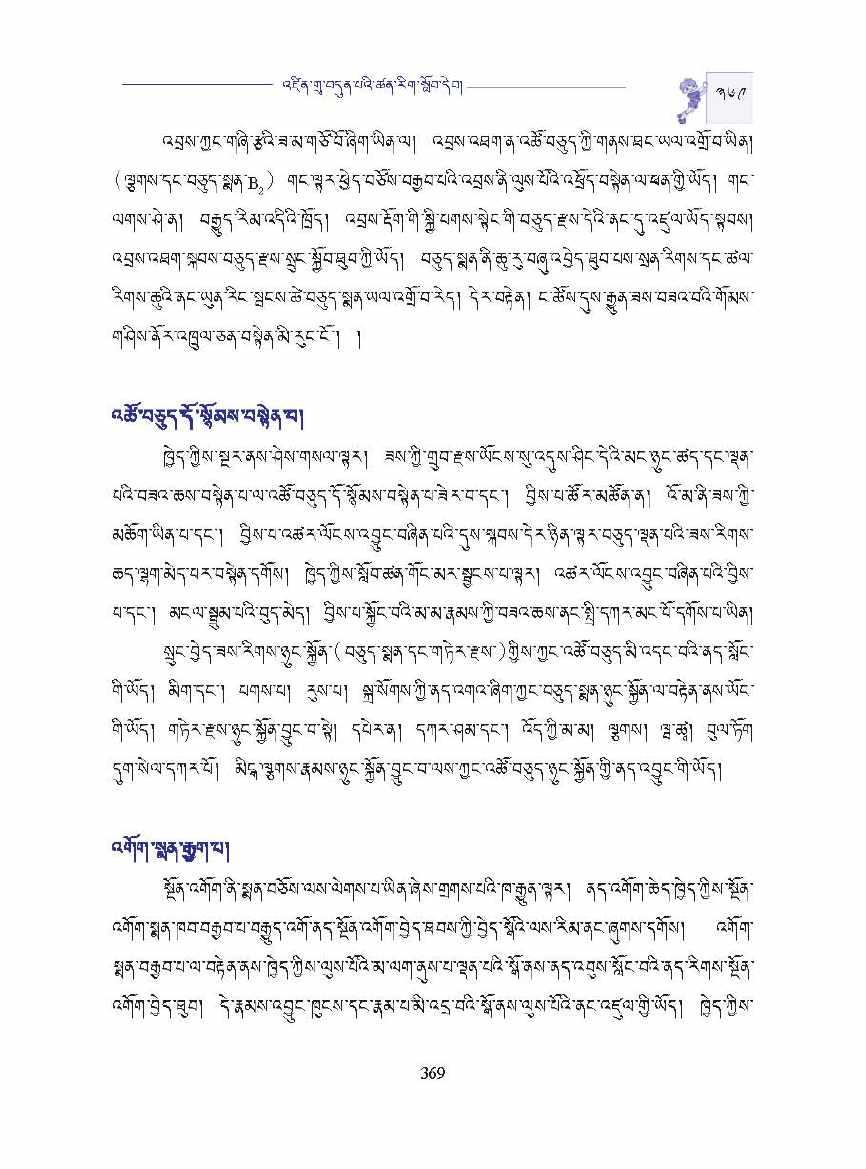 འཛིན་གྲྭ་བདུན་པའི་ཚན་རིག་སློབ་དེབ།
༣༦༩
འབྲས་ཀྱང་གཞི་རྩའི་ཟ་མ་གཙོ་བོ་ཞིག་ཡིན་ལ། འབྲས་འཐག་ན་འཚོ་བཅུད་ཀྱི་གནས་ཐང་ཡལ་འགྲོ་བ་ཡིན།
(ལྕགས་དང་བཅུད་སྨན་B2) གང་ལྟར་ཕྱེད་བཙོས་བརྒྱབ་པའི་འབྲས་ནི་ལུས་པོའི་འཕྲོད་བསྟེན་ལ་ཕན་གྱི་ཡོད། གང་
ལགས་ཤེ་ན། བརྒྱུད་རིམ་འདིའི་ཁྲོད། འབྲས་རྡོག་གི་སྐྱི་པགས་སྟེང་གི་བཅུད་རྫས་དེའི་ནང་དུ་འཛུལ་ཡོད་སྟབས།
འབྲས་འཐག་སྐབས་བཅུད་རྫས་སྲུང་སྐྱོབ་ཐུབ་ཀྱི་ཡོད། བཅུད་སྨན་ནི་ཆུ་རུ་བཞུ་འབྱེད་ཐུབ་པས་སྲན་རིགས་དང་ཚལ་
རིགས་ཆུའི་ནང་ཡུན་རིང་སྦངས་ཚེ་བཅུད་སྨན་ཡལ་འགྲོ་བ་རེད། དེར་བརྟེན། ང་ཚོས་དུས་རྒྱུན་ཟས་བཟའ་བའི་གོམས་
གཤིས་ནོར་འཁྲུལ་ཅན་བསྟེན་མི་རུང་ངོ་། །
འཚོ་བཅུད་དོ་སྙོམས་བསྟེན་པ།
ཁྱེད་ཀྱིས་སྔར་ནས་ཤེས་གསལ་ལྟར། ཟས་ཀྱི་གྲུབ་རྫས་ཡོངས་སུ་འདུས་ཤིང་དེའི་མང་ཉུང་ཚད་དང་ལྡན་
པའི་བཟའ་ཆས་བསྟེན་པ་ལ་འཚོ་བཅུད་དོ་སྙོམས་བསྟེན་པ་ཟེར་བ་དང་། བྱིས་པ་ཚོར་མཚོན་ན། འོ་མ་ནི་ཟས་ཀྱི་
མཆོག་ཡིན་པ་དང་། བྱིས་པ་འཚར་ལོངས་འབྱུང་བཞིན་པའི་དུས་སྐབས་དེར་ཉིན་ལྟར་བཅུད་ལྡན་པའི་ཟས་རིགས་
ཆད་ལྷག་མེད་པར་བསྟེན་དགོས། ཁྱེད་ཀྱིས་སློབ་ཚན་གོང་མར་སྦྱངས་པ་ལྟར། འཚར་ལོངས་འབྱུང་བཞིན་པའི་བྱིས་
པ་དང་། མངལ་སྦྲུམ་པའི་བུད་མེད། བྱིས་པ་སྐྱོང་བའི་མ་མ་རྣམས་ཀྱི་བཟའ་ཆས་ནང་སྤྲི་དཀར་མང་པོ་དགོས་པ་ཡིན།
སྲུང་བྱེད་ཟས་རིགས་ཉུང་སྐྱོན་(བཅུད་སྨན་དང་གཏེར་རྫས་)གྱིས་ཀྱང་འཚོ་བཅུད་མི་འདང་བའི་ནད་སློང་
གི་ཡོད། མིག་དང་། པགས་པ། རུས་པ། སྐྲ་སོགས་ཀྱི་ནད་འགའ་ཞིག་ཀྱང་བཅུད་སྨན་ཉུང་སྐྱོན་ལ་བརྟེན་ནས་ཡོང་
གི་ཡོད། གཏེར་རྫས་ཉུང་སྐྱོན་བྱུང་བ་སྟེ། དཔེར་ན། དཀར་ཤམ་དང་། འོད་ཀྱི་མ་མ། ལྕགས། ལྦ་ཚྭ། བུལ་ཏོག
དུག་སེལ་དཀར་པོ། མིདྷ་ལྕགས་རྣམས་ཉུང་སྐྱོན་བྱུང་བ་ལས་ཀྱང་འཚོ་བཅུད་ཉུང་སྐྱོན་གྱི་ནད་འབྱུང་གི་ཡོད།
འགོག་སྨན་རྒྱག་པ།
སྔོན་འགོག་ནི་སྨན་བཅོས་ལས་ལེགས་པ་ཡིན་ཞེས་གྲགས་པའི་ཁ་རྒྱུན་ལྟར། ནད་འགོག་ཆེད་ཁྱེད་ཀྱིས་སྔོན་
འགོག་སྨན་ཁབ་བརྒྱབ་པ་བརྒྱུད་འགོ་ནད་སྔོན་འགོག་བྱེད་ཐབས་ཀྱི་བྱེད་སྒོའི་ལས་རིམ་ནང་ཞུགས་དགོས། འགོག་
སྨན་བརྒྱབ་པ་ལ་བརྟེན་ནས་ཁྱེད་ཀྱིས་ལུས་པོའི་མ་ལག་ནུས་པ་ལྡན་པའི་སྒོ་ནས་ནད་འབུས་སློང་བའི་ནད་རིགས་སྔོན་
འགོག་བྱེད་ཐུབ། དེ་རྣམས་འབྱུང་ཁུངས་དང་རྣམ་པ་མི་འདྲ་བའི་སྒོ་ནས་ལུས་པོའི་ནང་འཛུལ་གྱི་ཡོད། ཁྱེད་ཀྱིས་
369